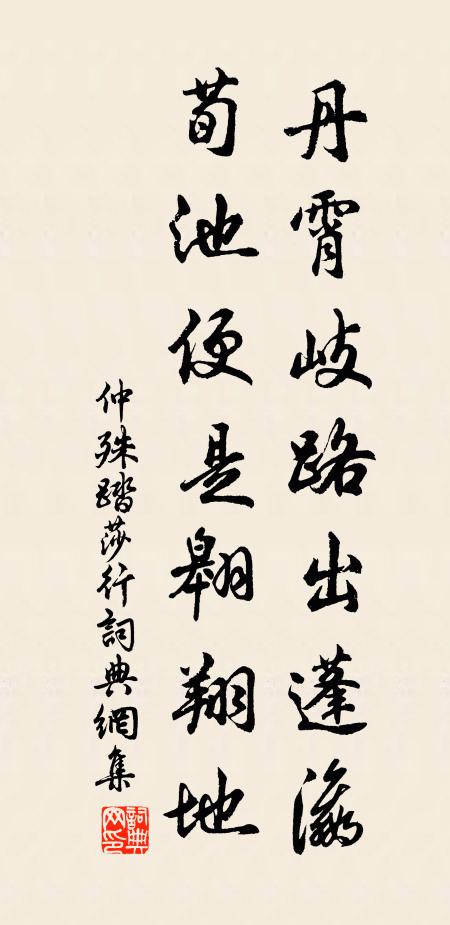 丹霄歧路出蓬瀛
荀池便是翱翔地
仲殊踏莎行詞典網集
詞典網印